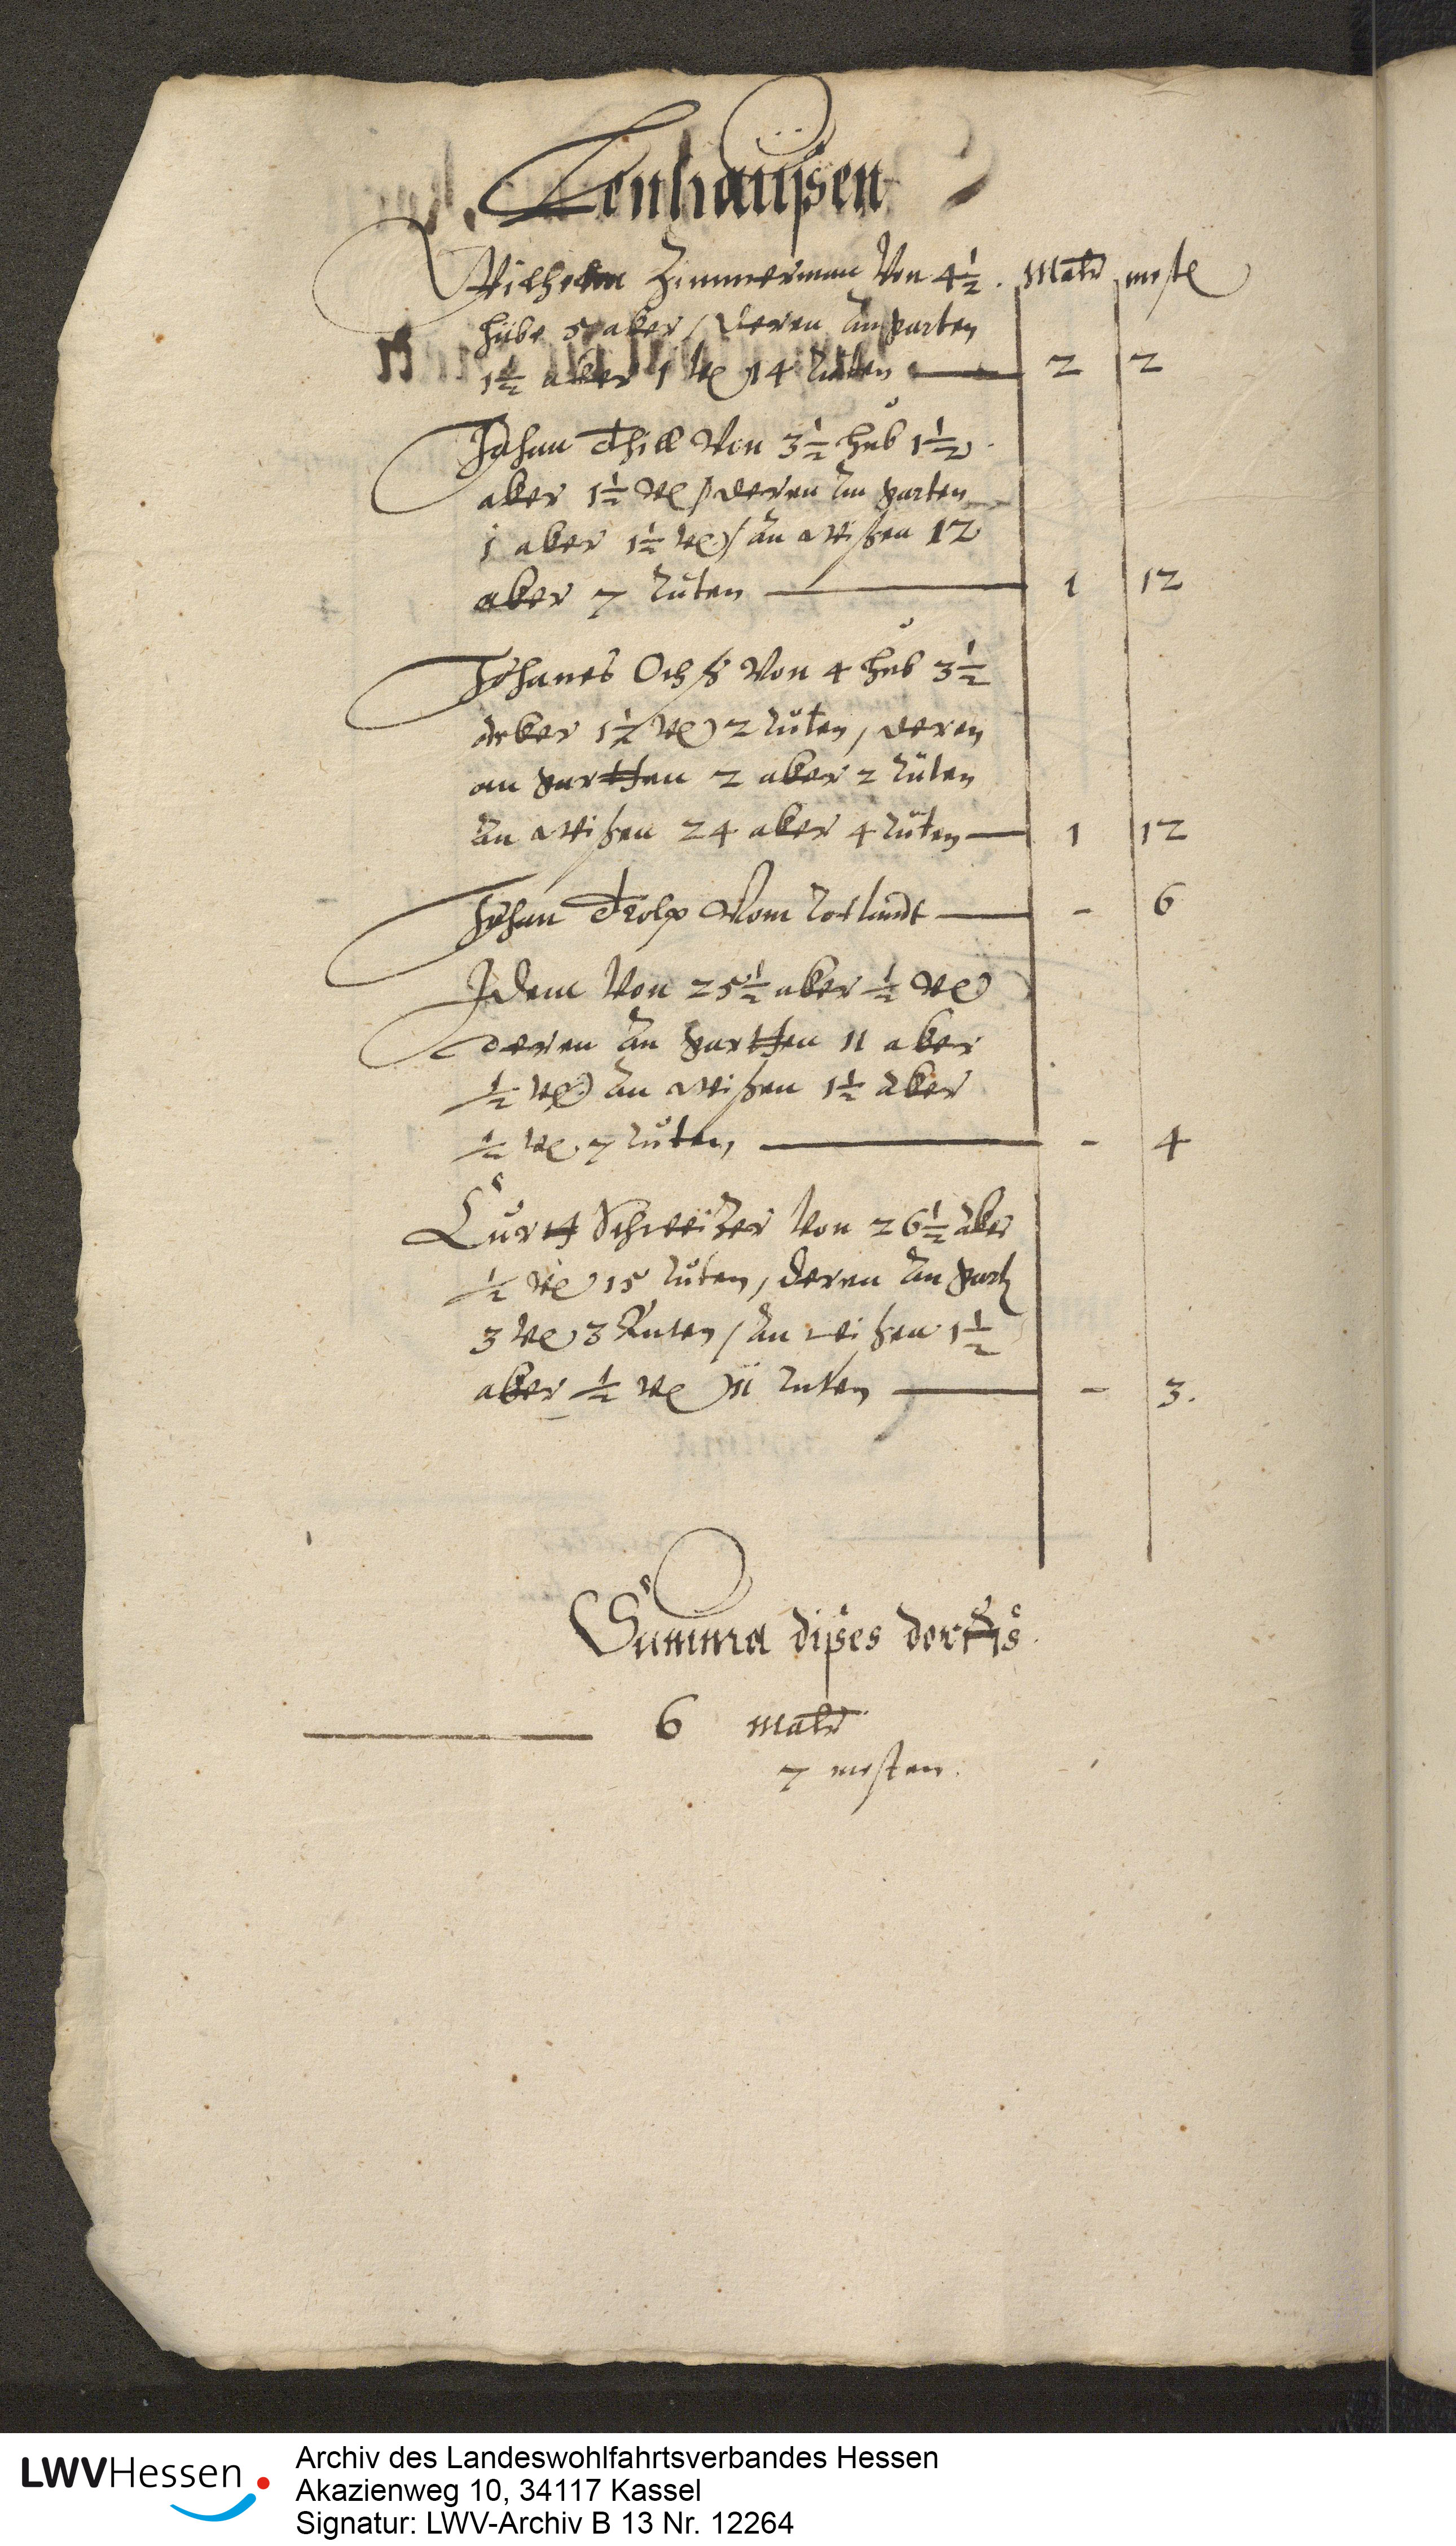 Zenhaußen
Wilhelm Zimmerman Von 4½. Maltr mest
hube 5 aker / deren An garten
1½ aker 1 14 ruten — 2 2
Johan Thill Von 3½ hub 1½
aker 1½ / deren An garten
1 aker 1½ / An wißen 12
aker 7 ruten — 1 12
Johanes Ochß Von 4 hub 3½
Acker 1½ 2 ruten, deren
an gartten 2 aker 2 ruten
An wißen 24 aker 4 ruten — 1 12
Johan Vom Rotlandt — - 6
Idem Von 25½ aker ½
deren An gartten 11 aker
½ An wißen 1½ aker
½ 7 ruten, — - 4
Curtt Schweitzer Von 26½ aker
½ 15 ruten, deren An
3 3 Ruten / An wißen 1½
aker ½ 11 ruten — - 3.
Summa dißes dorffs.
— 6 Maltr
7 mesten.
LWVHessen
Archiv des Landeswohlfahrtsverbandes Hessen
Akazienweg 10, 34117 Kassel
Signatur: LWV-Archiv B 13 Nr. 12264